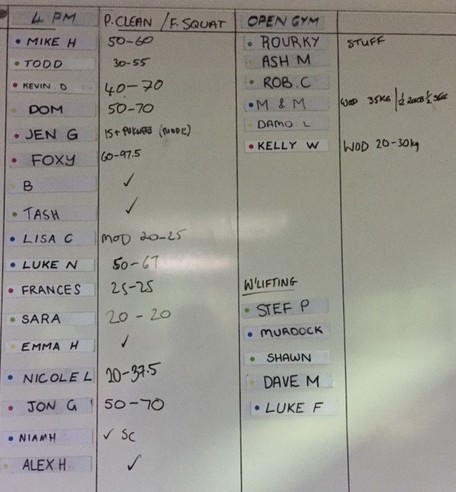 4 PM P.CLEAN / F.SQUAT OPEN GYM
MIKE H 50-60 ROURKY STUFF
TODD 30-55 ASH M
KEVIN D 40-70 ROB.C
DOM 50-70 M & M WOD 35KG
JEN G 15+ DAMO L
FOXY 60-97.5 KELLY W WOD 20-30kg
B ✓
TASH ✓
LISA C MOD 20-25
LUKE N 50-67
FRANCES 25-25 W'LIFTING
SARA 20-20 STEF P
EMMA H ✓ MURDOCK
NICOLE L 20-37.5 SHAWN
JON G 50-70 DAVE M
NIAMH ✓ SC LUKE F
ALEX H ✓